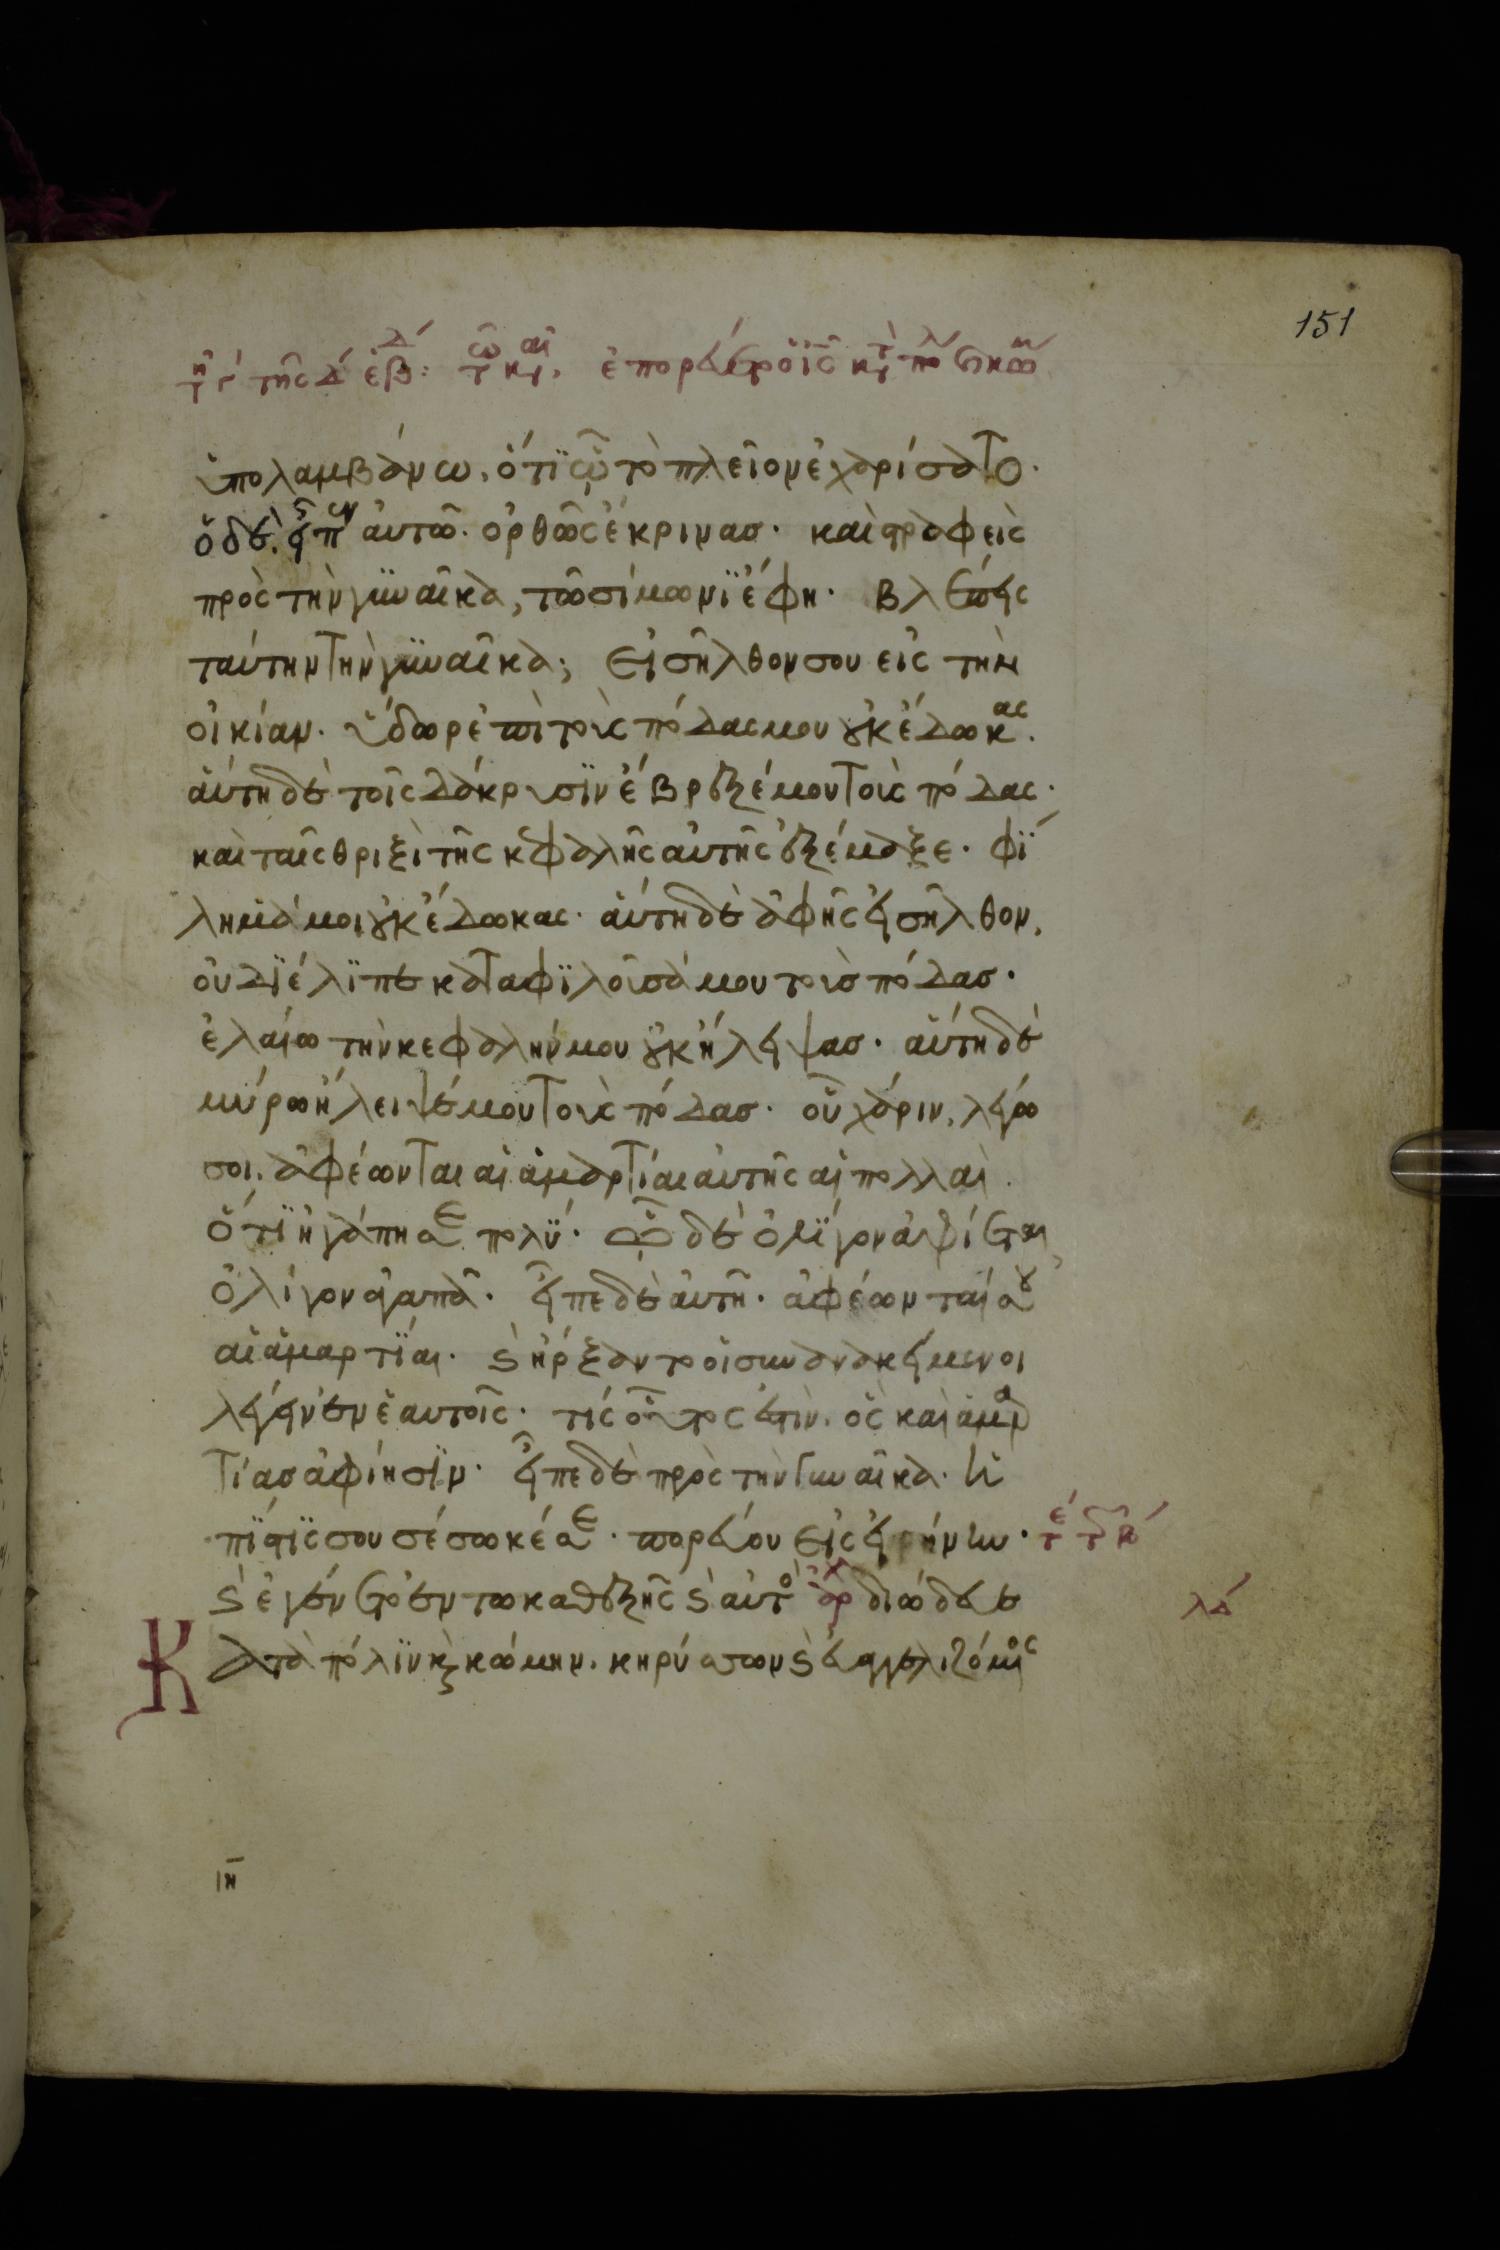 151
τῆ γ´ τῆς δ´ ἑβδ: τῶ καιρ. ἐπορεύετο ὁ ις κατ πολ κ κωμ
ὑπολαμβάνω, ὅτϊ ὧ τὸ πλεῖον ἐχαρίσατο.
ὁ δὲ, εἶπεν αὐτῶ. ὀρθῶς ἔκρινας. καὶ στραφεὶς
πρὸς τὴν γϋναῖκα, τῶ σίμωνϊ ἔφη. βλέπεις
ταύτην τὴν γϋναῖκα; εἰσῆλθον σου εἰς τὴν
οἰκίαν. ὕδωρ ἐπὶ τοὺς πόδας μου οὐκ ἔδωκας.
αὕτη δὲ τοῖς δάκρυσϊν ἔβρεξέ μου τοὺς πόδας.
καὶ ταῖς θριξὶ τῆς κεφαλῆς αὐτῆς ἐξέμαξε. φϊ
λημά μοι οὐκ ἔδωκας. αὕτη δὲ ἀφῆς εἰσῆλθον,
οὐ δϊέλϊπε καταφϊλοῦσά μου τοὺς πόδας.
ἐλαίω τὴν κεφαλήν μου οὐκ ἤλειψας. αὕτη δὲ
μύρω ἤλειψέ μου τοὺς πόδας. οὗ χάριν, λέγω
σοι, ἀφέωνται αἱ ἁμαρτίαι αὐτῆς αἱ πολλαὶ.
ὅτϊ ἠγάπησε πολϋ´. ὧ δὲ ὀλϊ´γον ἀφίεται,
ὀλίγον ἀγαπᾶ. εἶπε δὲ αὐτῆ. ἀφέωνταί σου
αἱ ἁμαρτϊ´αι. καὶ ἤρξαντο οἱ συνανακείμενοι
λέγειν ἐν ἑαυτοῖς. τίς οὗτος ἐστὶν, ὃς καὶ ἁμαρ
τίας ἀφίησϊν. εἶπε δὲ πρὸς τὴν γυναῖκα. ἡ
πϊ´στϊς σου σέσωκέ σε. πορεύου εἰς εἰρήνην. τέ τ κ
καὶ ἐγένετο ἐν τῶ καθεξῆς καὶ αὐτὸ ἀρχ διώδευε
λδ
Κατὰ πόλϊν καὶ κώμην, κηρύσσων καὶ εὐαγγελιζόμενος
ιη